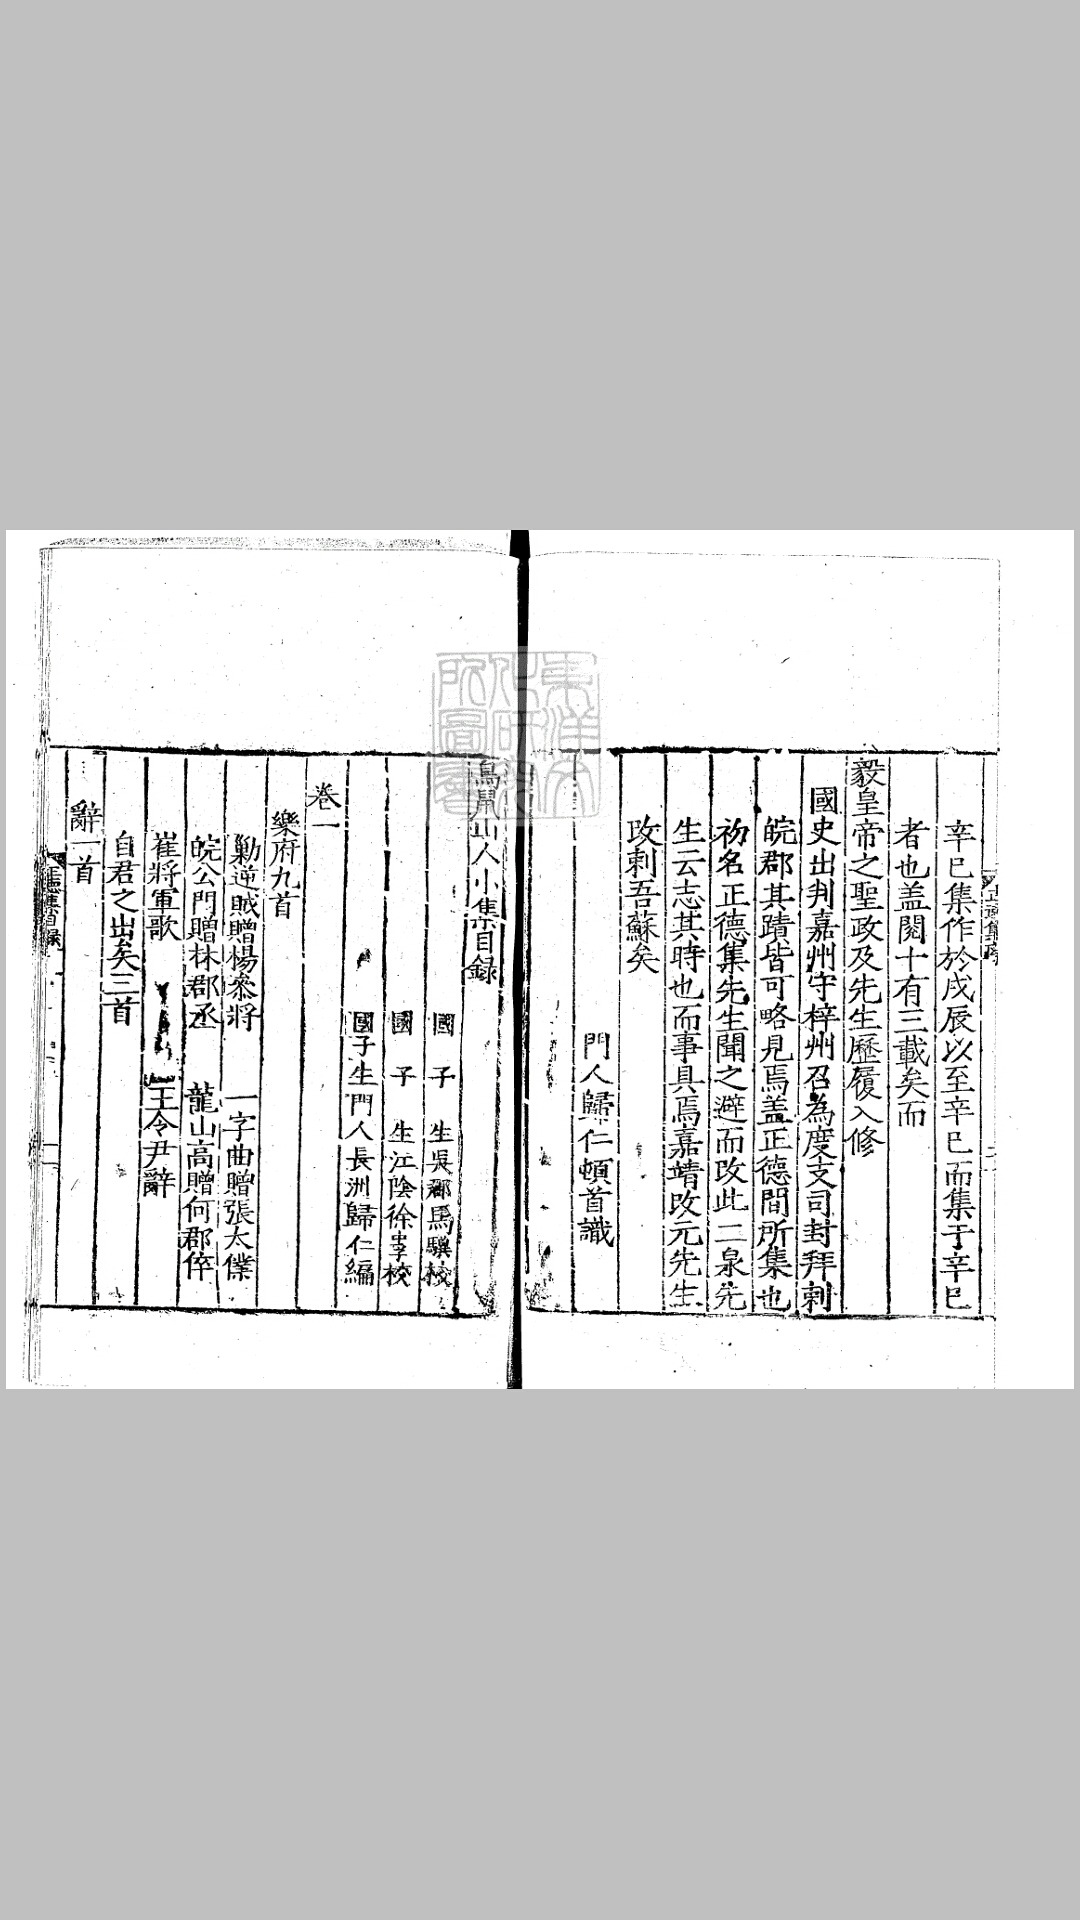 辛巳集作於戊辰以至辛巳而集于辛巳
者也盖閱十有三載矣而
毅皇帝之聖政及先生歷履入修
國史出判嘉州守梓州召為度支司封拜刺
皖郡其蹟皆可略見焉盖正德間所集也
初名正德集先生聞之避而改此二泉先
生云志其時也而事具焉嘉靖改元先生
改刺吾蘇矣
門人歸仁頓首識
鳥鼠山人小集目録
國子生吳郡馬驥校
國子生江陰徐𡥉校
國子生門人長洲歸仁編
卷一
樂府九首
勦逆賊贈楊叅將 一字曲贈張太僕
皖公門贈林郡丞 龍山高贈何郡倅
崔將軍歌 王令尹辭
自君之出矣三首
辭一首